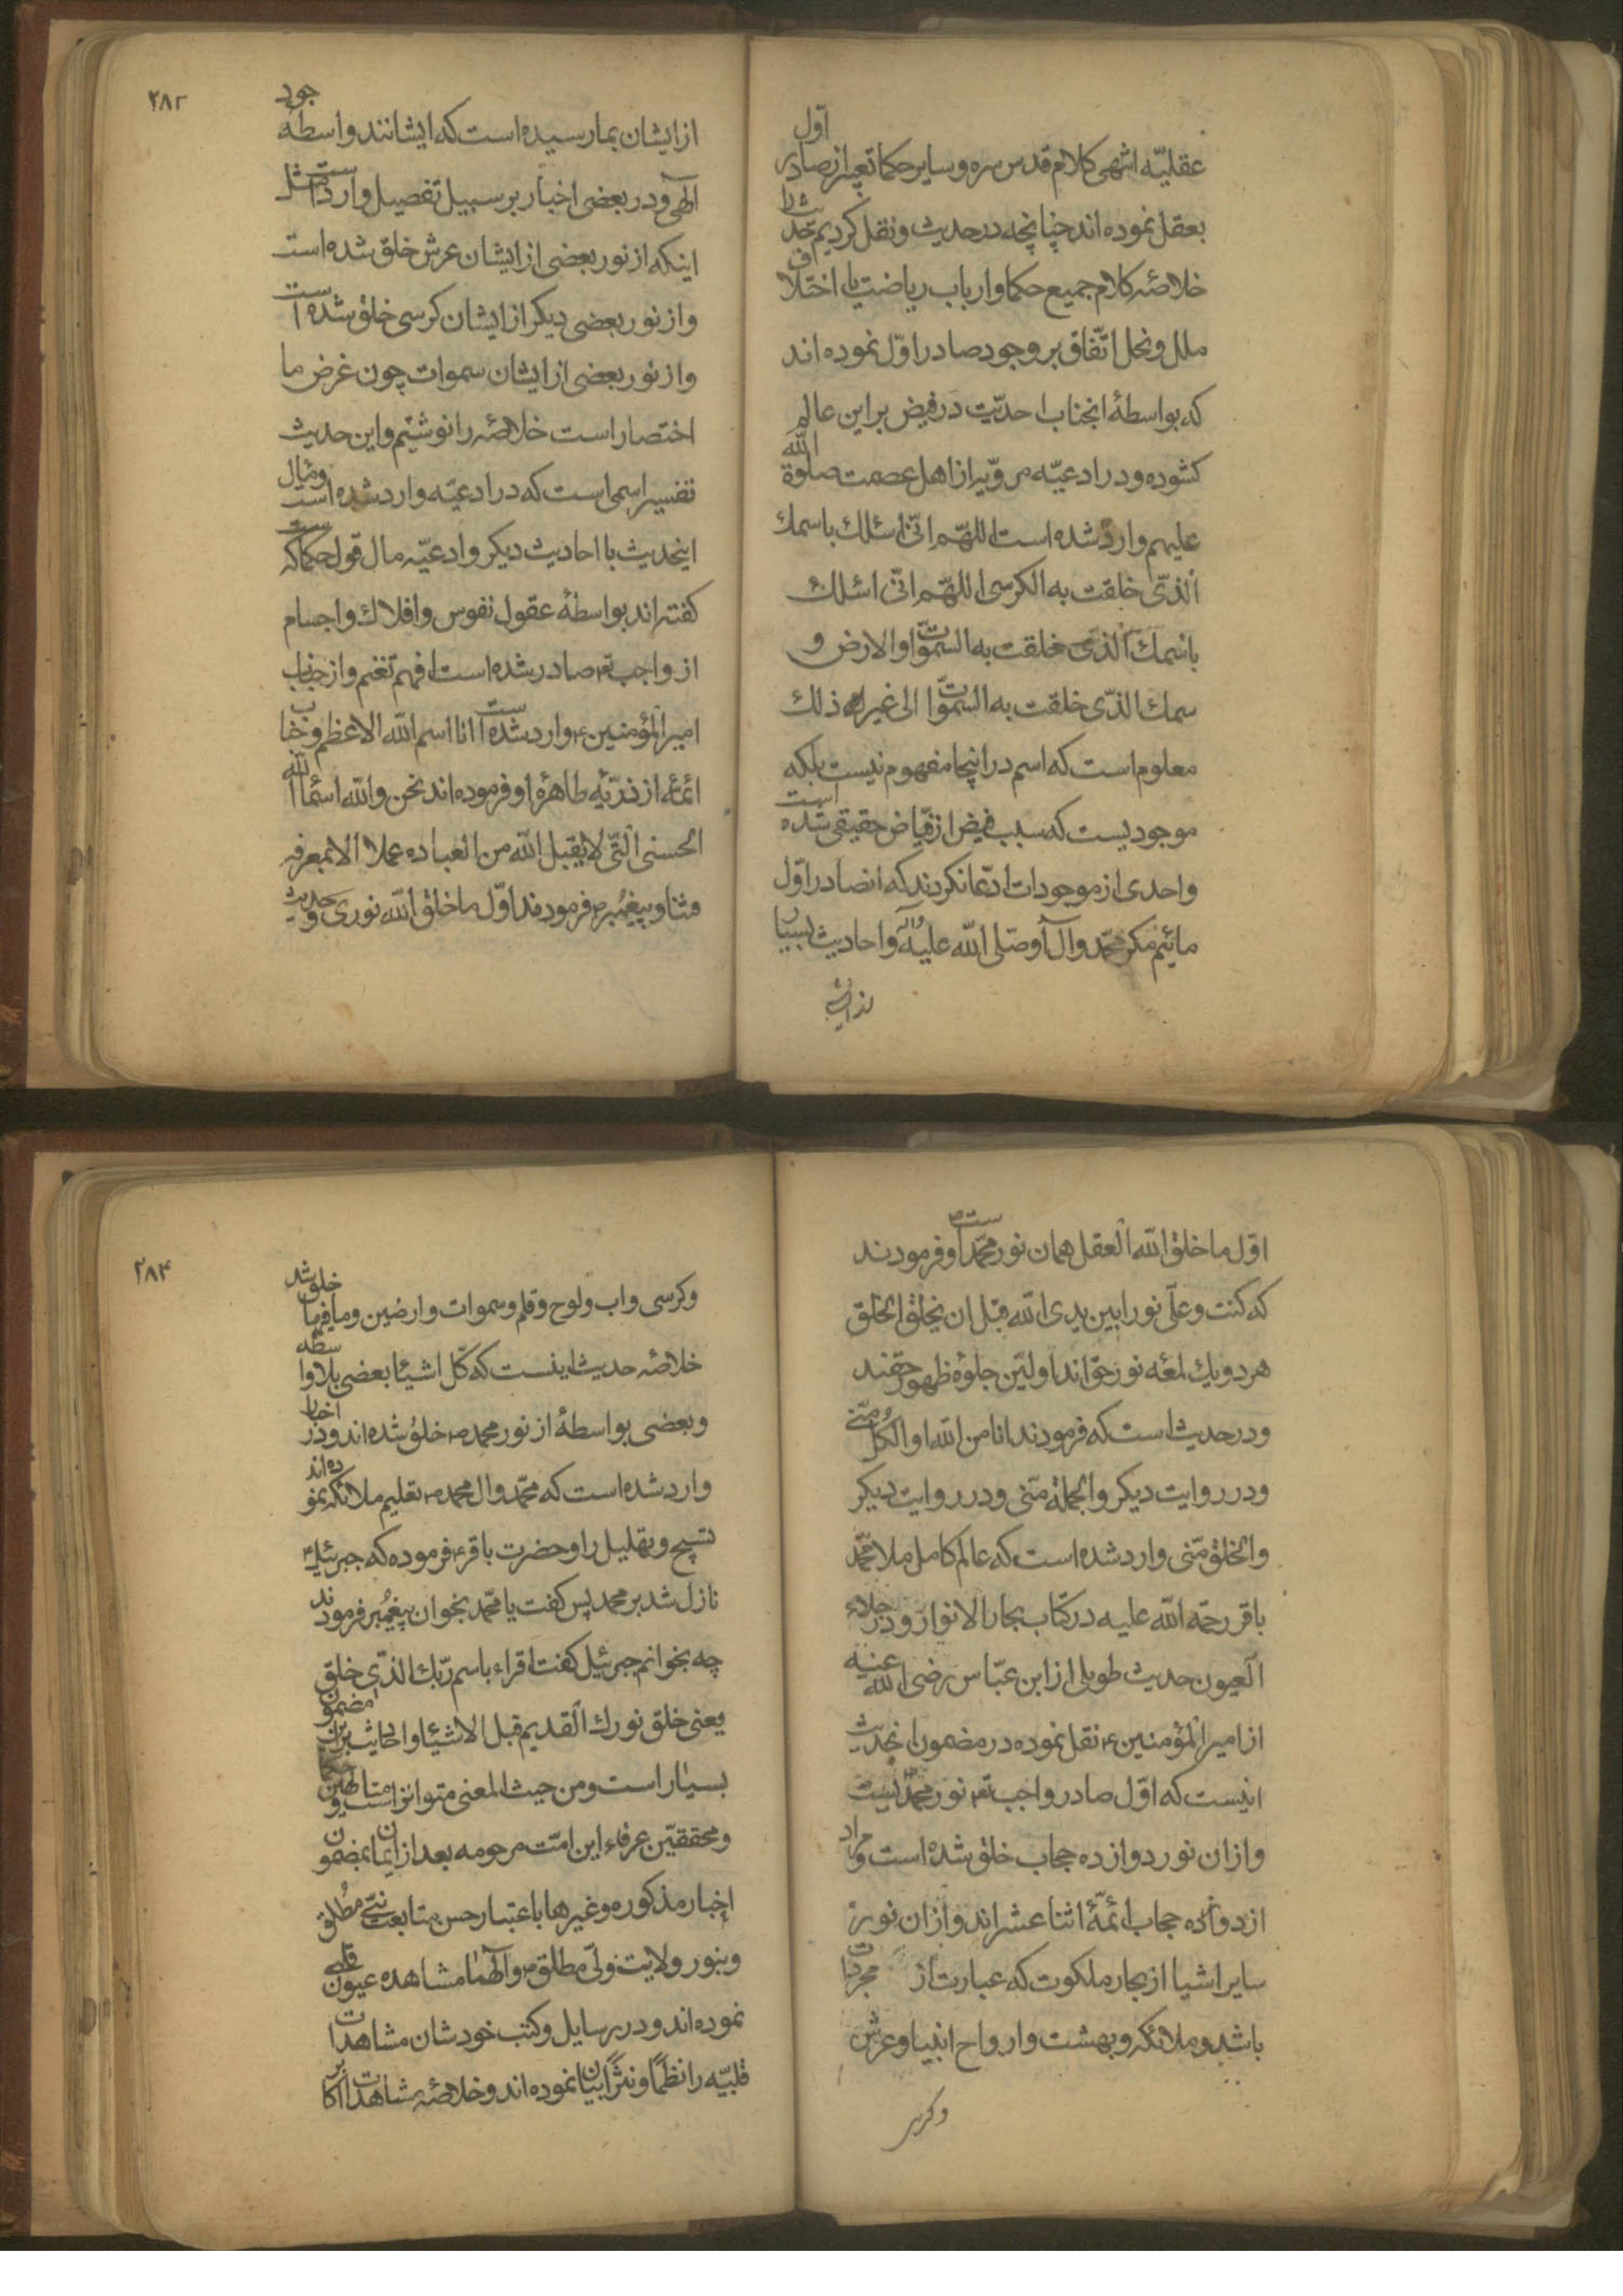 عقلیّه انتهی کلام قدس سره و سایر حکما تعبیر از صادر اوّل
بعقل نموده اند چنانچه در حدیث و نقل کردیم
خلاصهٔ کلام جمیع حکما و ارباب ریاضت با اختلاف
ملل و نحل اتّفاق بر وجود صادر اوّل نموده اند
که بواسطهٔ انجناب احدیّت در فیض بر این عالم
کشوده و در ادعیّه مرویّه از اهل عصمت صلوة الله
علیهم وارد شده است اللهّم انّی اسئلك باسمك
الّذی خلقت به الکرسی اللهّم انّی اسئلك
باسمك الّذی خلقت به السمّوات و الارض و
سمك الذّی خلقت به السمّوات الی غیر ذلك
معلوم است که اسم در اینجا مفهوم نیست بلکه
موجودیست که سبب فیض از فیّاض حقیقی شده است
واحدی از موجودات ادّعا نکردند که انصادر اوّل
مائیم مکر محمّد و آل او صلّی الله علیه و اله و احادیث بسیار
از ایشان
۲۸۳
از ایشان بما رسیده است که ایشانند واسطهٔ جود
الهی و در بعضی اخبار بر سبیل تفصیل وارد است مثل
اینکه از نور بعضی از ایشان عرش خلق شده است
و از نور بعضی دیکر از ایشان کرسی خلق شده است
و از نور بعضی از ایشان سموات چون غرض ما
اختصار است خلاصه را نوشتیم و این حدیث
تفسیر اسمی است که در ادعیّه وارد شده است و مٰال
اینحدیث با احادیث دیکر و ادعیّه مال قول حکماست که
کفته اند بواسطهٔ عقول نفوس و افلاك و اجسام
از واجب تع صادر شده است فافهم تغنم و از جناب
امیر المؤمنین ع وارد شده است انا اسم الله الاعظم و جناب
ائمهٔ از ذریّهٔ طاهرهٔ او فرموده اند نحن والله اسمٰا الله
الحسنی الّتی لا یقبل الله من العباده عملا الا بمعرفة
فتنا و پیغمبر ص فرمودند اوّل ما خلق الله نوری و حدیث
اوّل ما خلق الله العقل همان نور محمّد است ص و فرمودند
که کنت و علّی نورا بین یدی الله قبل ان یخلق الخلق
هر دو یك لمعه نور حق اند اولیّن جلوهٔ ظهور حقند
و در حدیث است که فرمودند انا من الله و الکل منّی
و در روایت دیکر و الجملة منّی و در روایت دیکر
و الخلق منّی وارد شده است که عالم کامل ملا محمّد
باقر رحمة الله علیه در کتاب بحار الانوار و در جلاء
العیون حدیث طویلی از ابن عبّاس رضی الله عنه
از امیر المؤمنین ع نقل نموده در مضمون انحدیث
اینست که اوّل صادر واجب تع نور محمّدیست
و از ان نور دوازده حجاب خلق شده است و مراد
از دوازده حجاب ائمّهٔ اثنا عشر اند و از ان نور
سایر اشیا از بحار ملکوت که عبارت از مجردات
باشد و ملائکه و بهشت و ارواح انبیا و عرش
و کرسی
۲۸۴
و کرسی و اب و لوح و قلم و سموات و ارضین و ما فیها خلق شد
خلاصهٔ حدیث اینست که کلّ اشیٰا بعضی بلا واسطه
و بعضی بواسطهٔ از نور محمد ص خلق شده اند و در اخبار
وارد شده است که محمّد و ال محمد ص تعلیم ملائکه نموده اند
تسبیح و تهلیل را و حضرت باقر ع فرموده که جبرئیل
نازل شد بر محمد پس کفت یا محمّد بخوان پیغمبر فرمودند
چه بخوانم جبرئیل کفت اقراء باسم ربّك الذّی خلق
یعنی خلق نورك القدیم قبل الاشیٰا و احادیث بر این مضمون
بسیٰار است و من حیث المعنی متواتر است و حکما متالهین
و محققیّن عرفاء این امّت مرحومه بعد از ایمان بمضمون
اخبار مذکوره و غیرها باعتبار حسن متابعت نبّی مطلق
و بنور ولایت ولّی مطلق ص و الهما مشاهده عیون قلبی
نموده اند و در رسایل و کتب خودشان مشاهدات
قلبیّه را نظمًا و نثرًا بیٰان نموده اند و خلاصهٔ مشاهدات اکابر